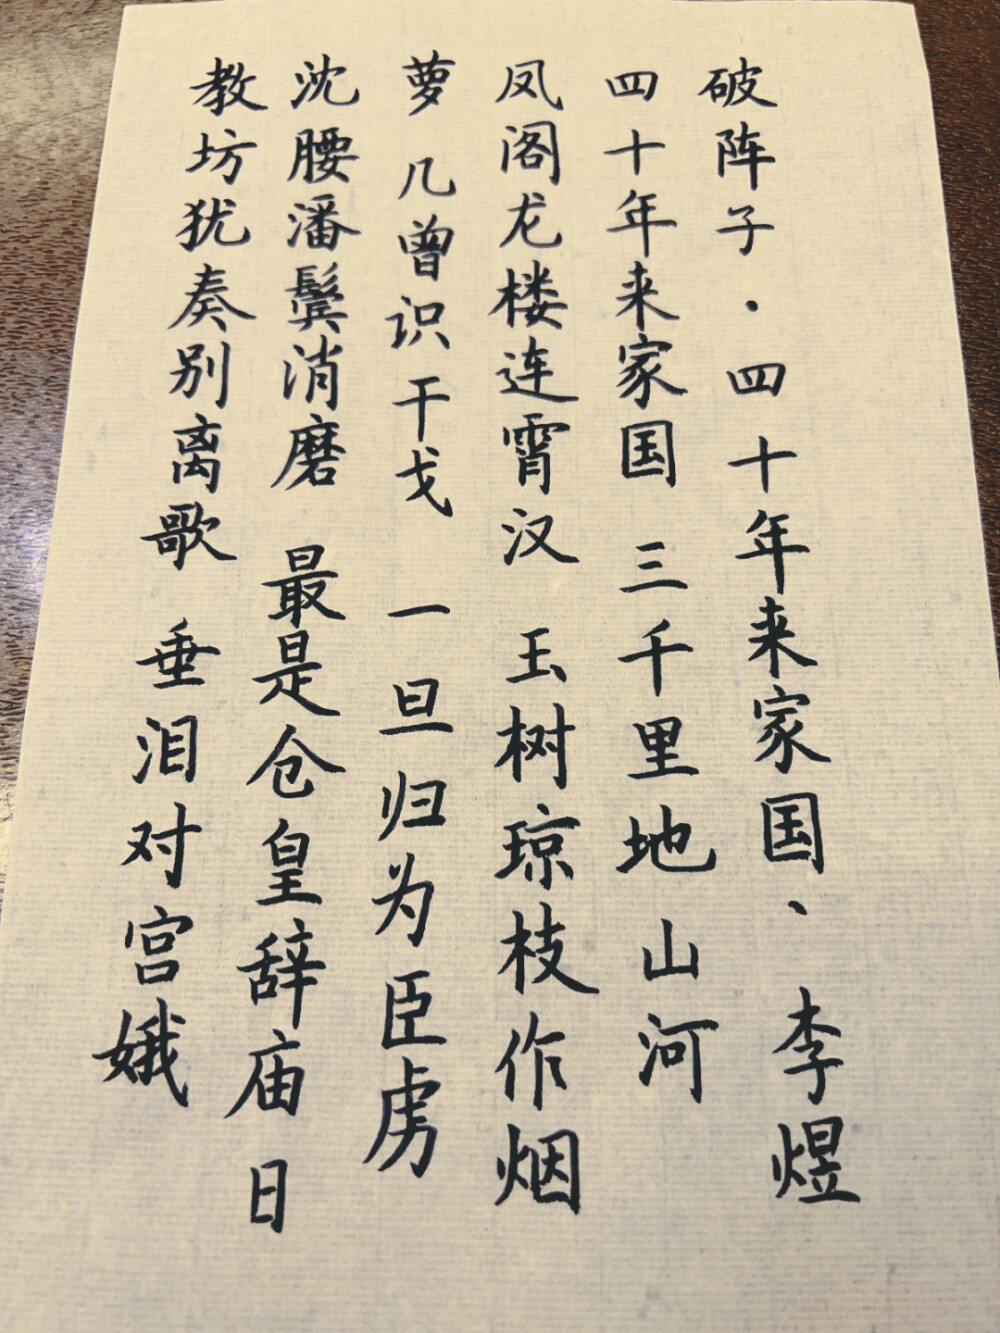 破阵子·四十年来家国·李煜
四十年来家国 三千里地山河
凤阁龙楼连霄汉 玉树琼枝作烟
萝 几曾识干戈 一旦归为臣虏
沈腰潘鬓消磨 最是仓皇辞庙日
教坊犹奏别离歌 垂泪对宫娥